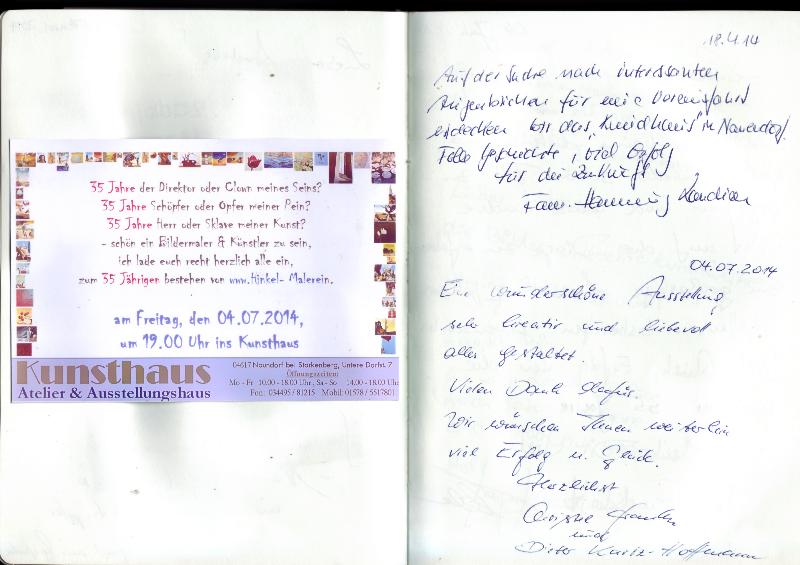 35 Jahre der Direktor oder Clown meines Seins?
35 Jahre Schöpfer oder Opfer meiner Pein?
35 Jahre Herr oder Sklave meiner Kunst?
- schön ein Bildermaler & Künstler zu sein,
ich lade euch recht herzlich alle ein,
zum 35 Jährigen bestehen von www.Hinkel-Malerein.
am Freitag, den 04.07.2014,
um 19.00 Uhr ins Kunsthaus
Kunsthaus
Atelier & Ausstellungshaus
04617 Naundorf bei Starkenberg, Untere Dorfst. 7
Öffnungszeiten:
Mo - Fr 10.00 - 18.00 Uhr, Sa - So 14.00 - 18.00 Uhr
Fon: 034495 / 81215 Mobil: 01578 / 5517801
18.4.14
Auf der Suche nach interessanten
für eine Vereinsfahrt
entdeckten wir das in Naundorf.
viel Erfolg
für die Zukunft
Fam. Henning
04.07.2014
Eine wunderschöne Ausstellung,
sehr kreativ und liebevoll
alles gestaltet.
Vielen Dank dafür.
Wir wünschen Ihnen weiterhin
viel Erfolg u. Glück.
Herzlichst
und
Dieter Hoffmann